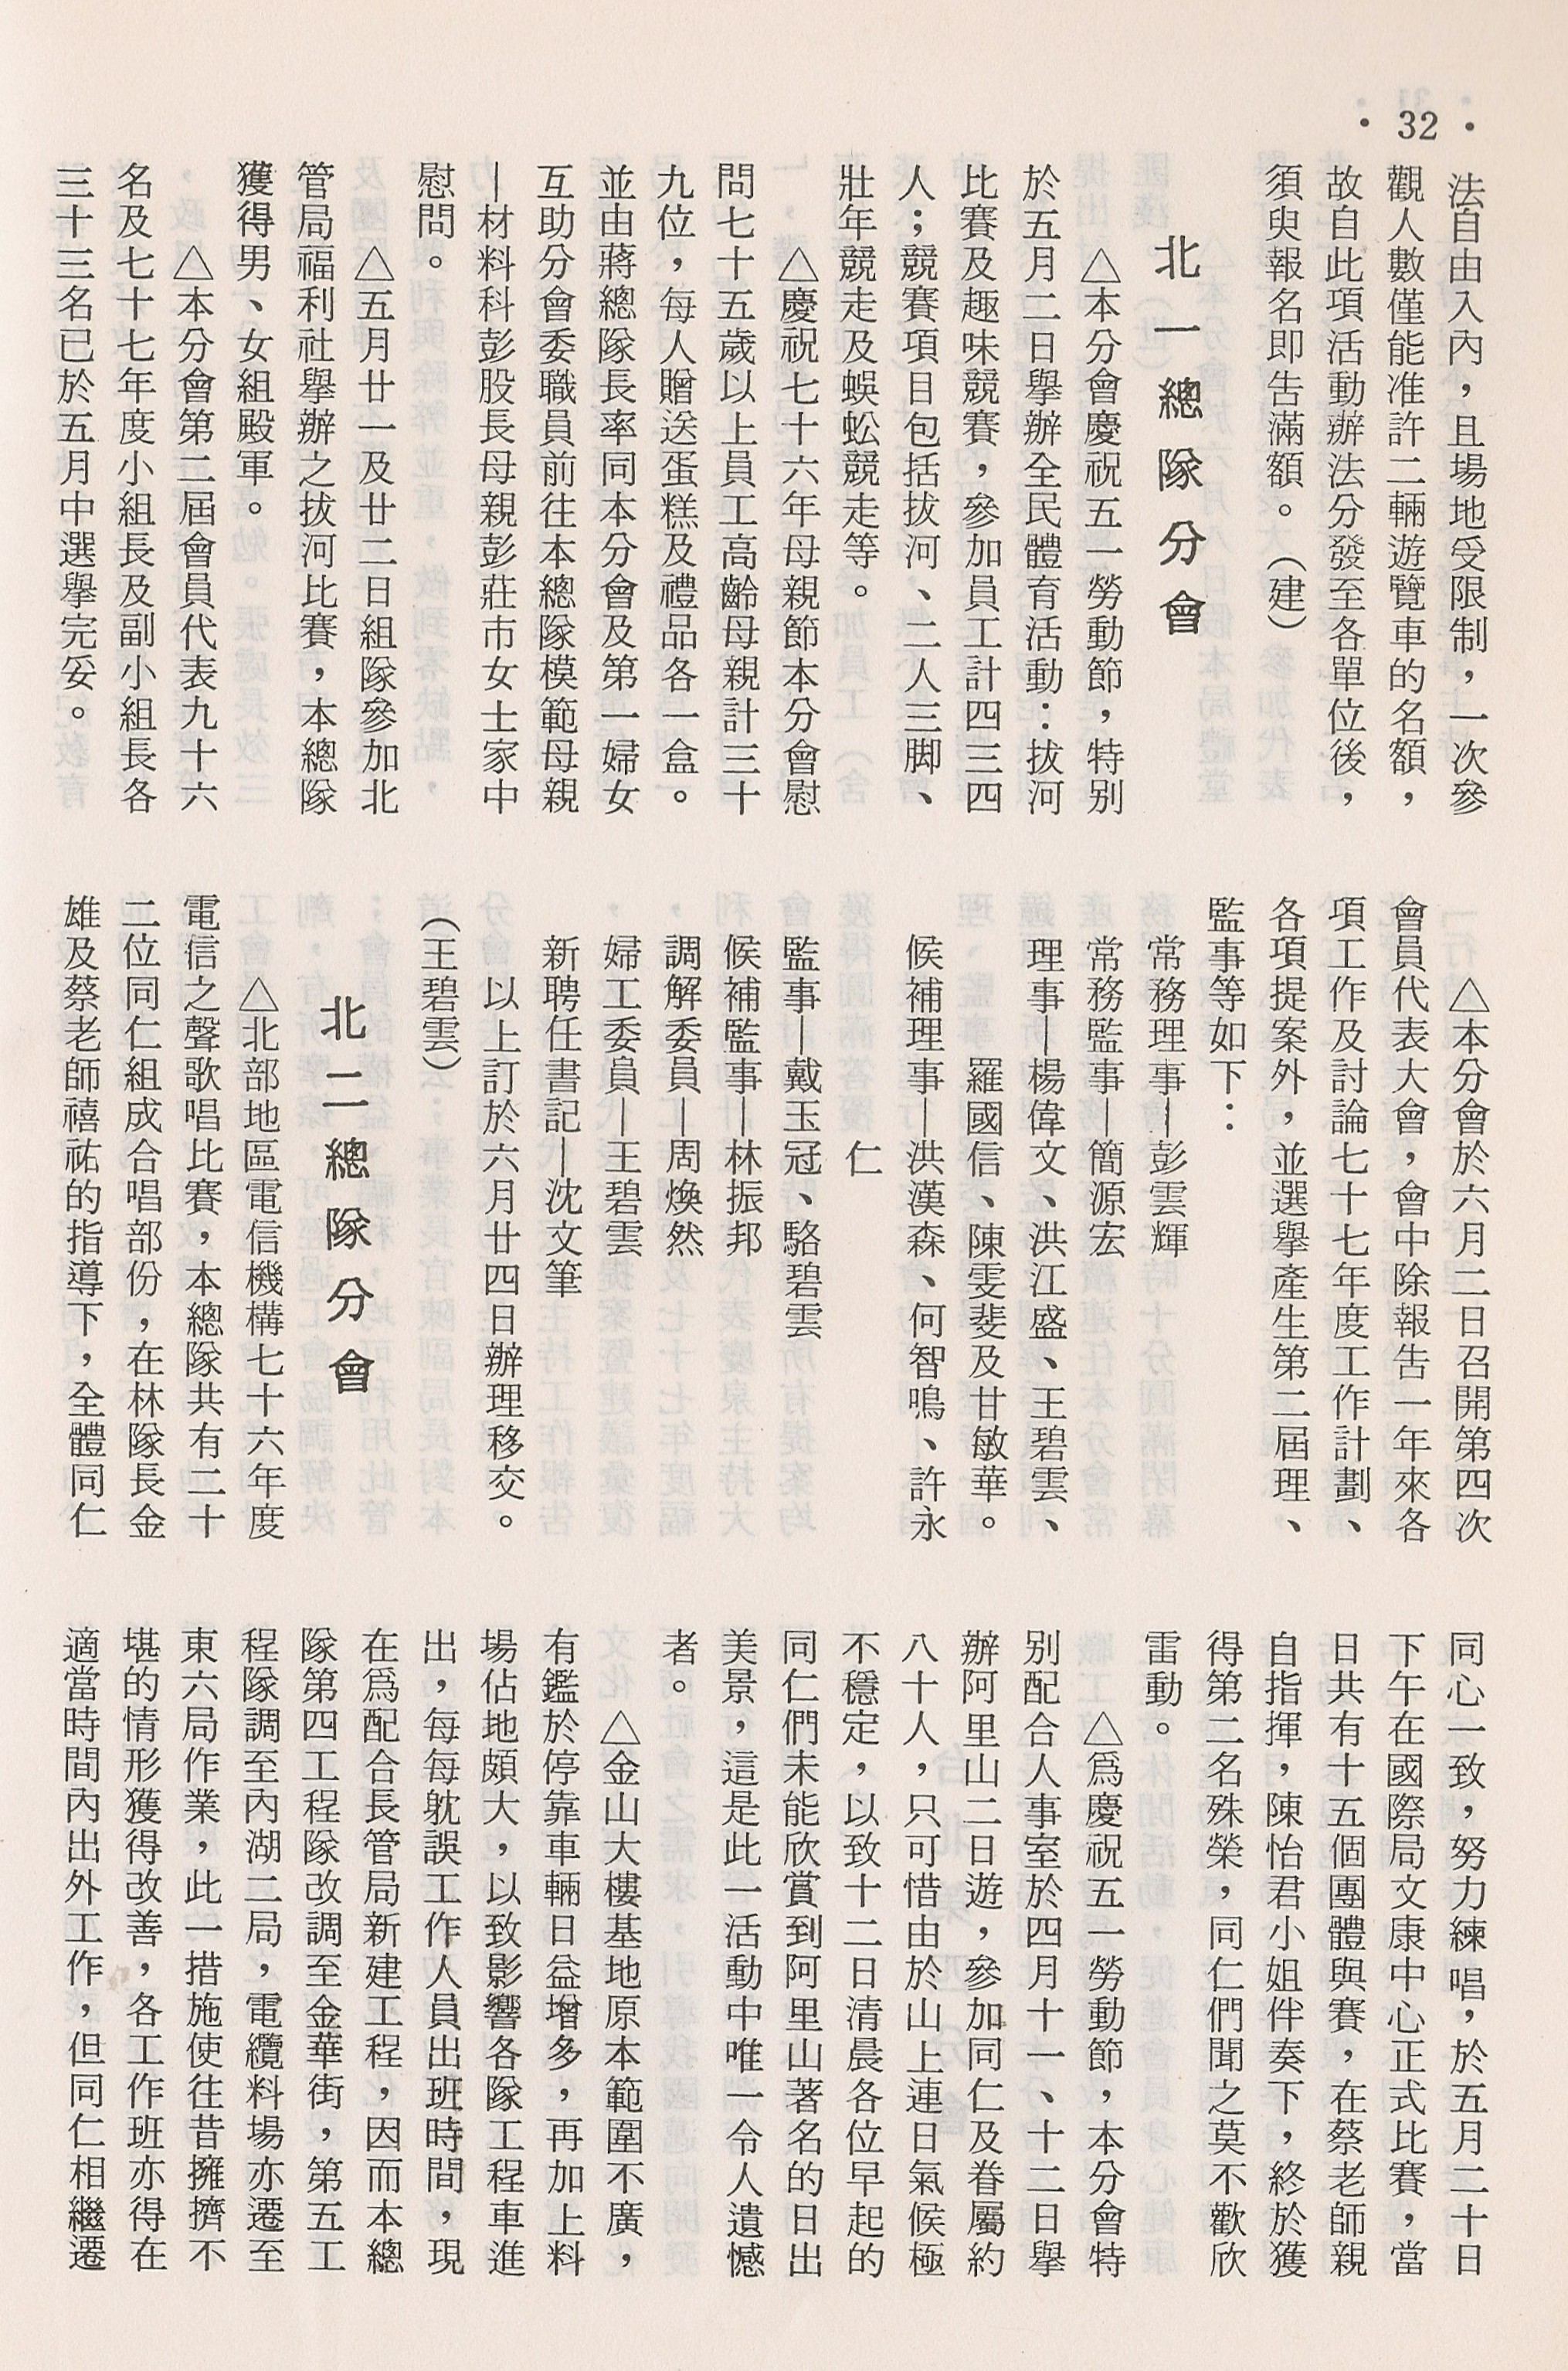 • 32 •
法自由入內，且場地受限制，一次參
觀人數僅能准許二輛遊覽車的名額，
故自此項活動辦法分發至各單位後，
須臾報名即告滿額。（建）
北一總隊分會
△本分會慶祝五一勞動節，特別
於五月二日舉辦全民體育活動：拔河
比賽及趣味競賽，參加員工計四三四
人；競賽項目包括拔河、二人三脚、
壯年競走及蜈蚣競走等。
△慶祝七十六年母親節本分會慰
問七十五歲以上員工高齡母親計三十
九位，每人贈送蛋糕及禮品各一盒。
並由蔣總隊長率同本分會及第一婦女
互助分會委職員前往本總隊模範母親
—材料科彭股長母親彭莊市女士家中
慰問。
△五月廿一及廿二日組隊參加北
管局福利社舉辦之拔河比賽，本總隊
獲得男、女組殿軍。
△本分會第二屆會員代表九十六
名及七十七年度小組長及副小組長各
三十三名已於五月中選舉完妥。
△本分會於六月二日召開第四次
會員代表大會，會中除報告一年來各
項工作及討論七十七年度工作計劃、
各項提案外，並選舉產生第二屆理、
監事等如下：
常務理事—彭雲輝
常務監事—簡源宏
理事—楊偉文、洪江盛、王碧雲、
羅國信、陳雯斐及甘敏華。
候補理事—洪漢森、何智鳴、許永
仁
監事—戴玉冠、駱碧雲
候補監事—林振邦
調解委員—周煥然
婦工委員—王碧雲
新聘任書記—沈文筆
以上訂於六月廿四日辦理移交。
（王碧雲）
北二總隊分會
△北部地區電信機構七十六年度
電信之聲歌唱比賽，本總隊共有二十
二位同仁組成合唱部份，在林隊長金
雄及蔡老師禧祐的指導下，全體同仁
同心一致，努力練唱，於五月二十日
下午在國際局文康中心正式比賽，當
日共有十五個團體與賽，在蔡老師親
自指揮，陳怡君小姐伴奏下，終於獲
得第二名殊榮，同仁們聞之莫不歡欣
雷動。
△爲慶祝五一勞動節，本分會特
別配合人事室於四月十一、十二日舉
辦阿里山二日遊，參加同仁及眷屬約
八十人，只可惜由於山上連日氣候極
不穩定，以致十二日清晨各位早起的
同仁們未能欣賞到阿里山著名的日出
美景，這是此一活動中唯一令人遺憾
者。
△金山大樓基地原本範圍不廣，
有鑑於停靠車輛日益增多，再加上料
場佔地頗大，以致影響各隊工程車進
出，每每躭誤工作人員出班時間，現
在爲配合長管局新建工程，因而本總
隊第四工程隊改調至金華街，第五工
程隊調至內湖二局，電纜料場亦遷至
東六局作業，此一措施使往昔擁擠不
堪的情形獲得改善，各工作班亦得在
適當時間內出外工作，但同仁相繼遷